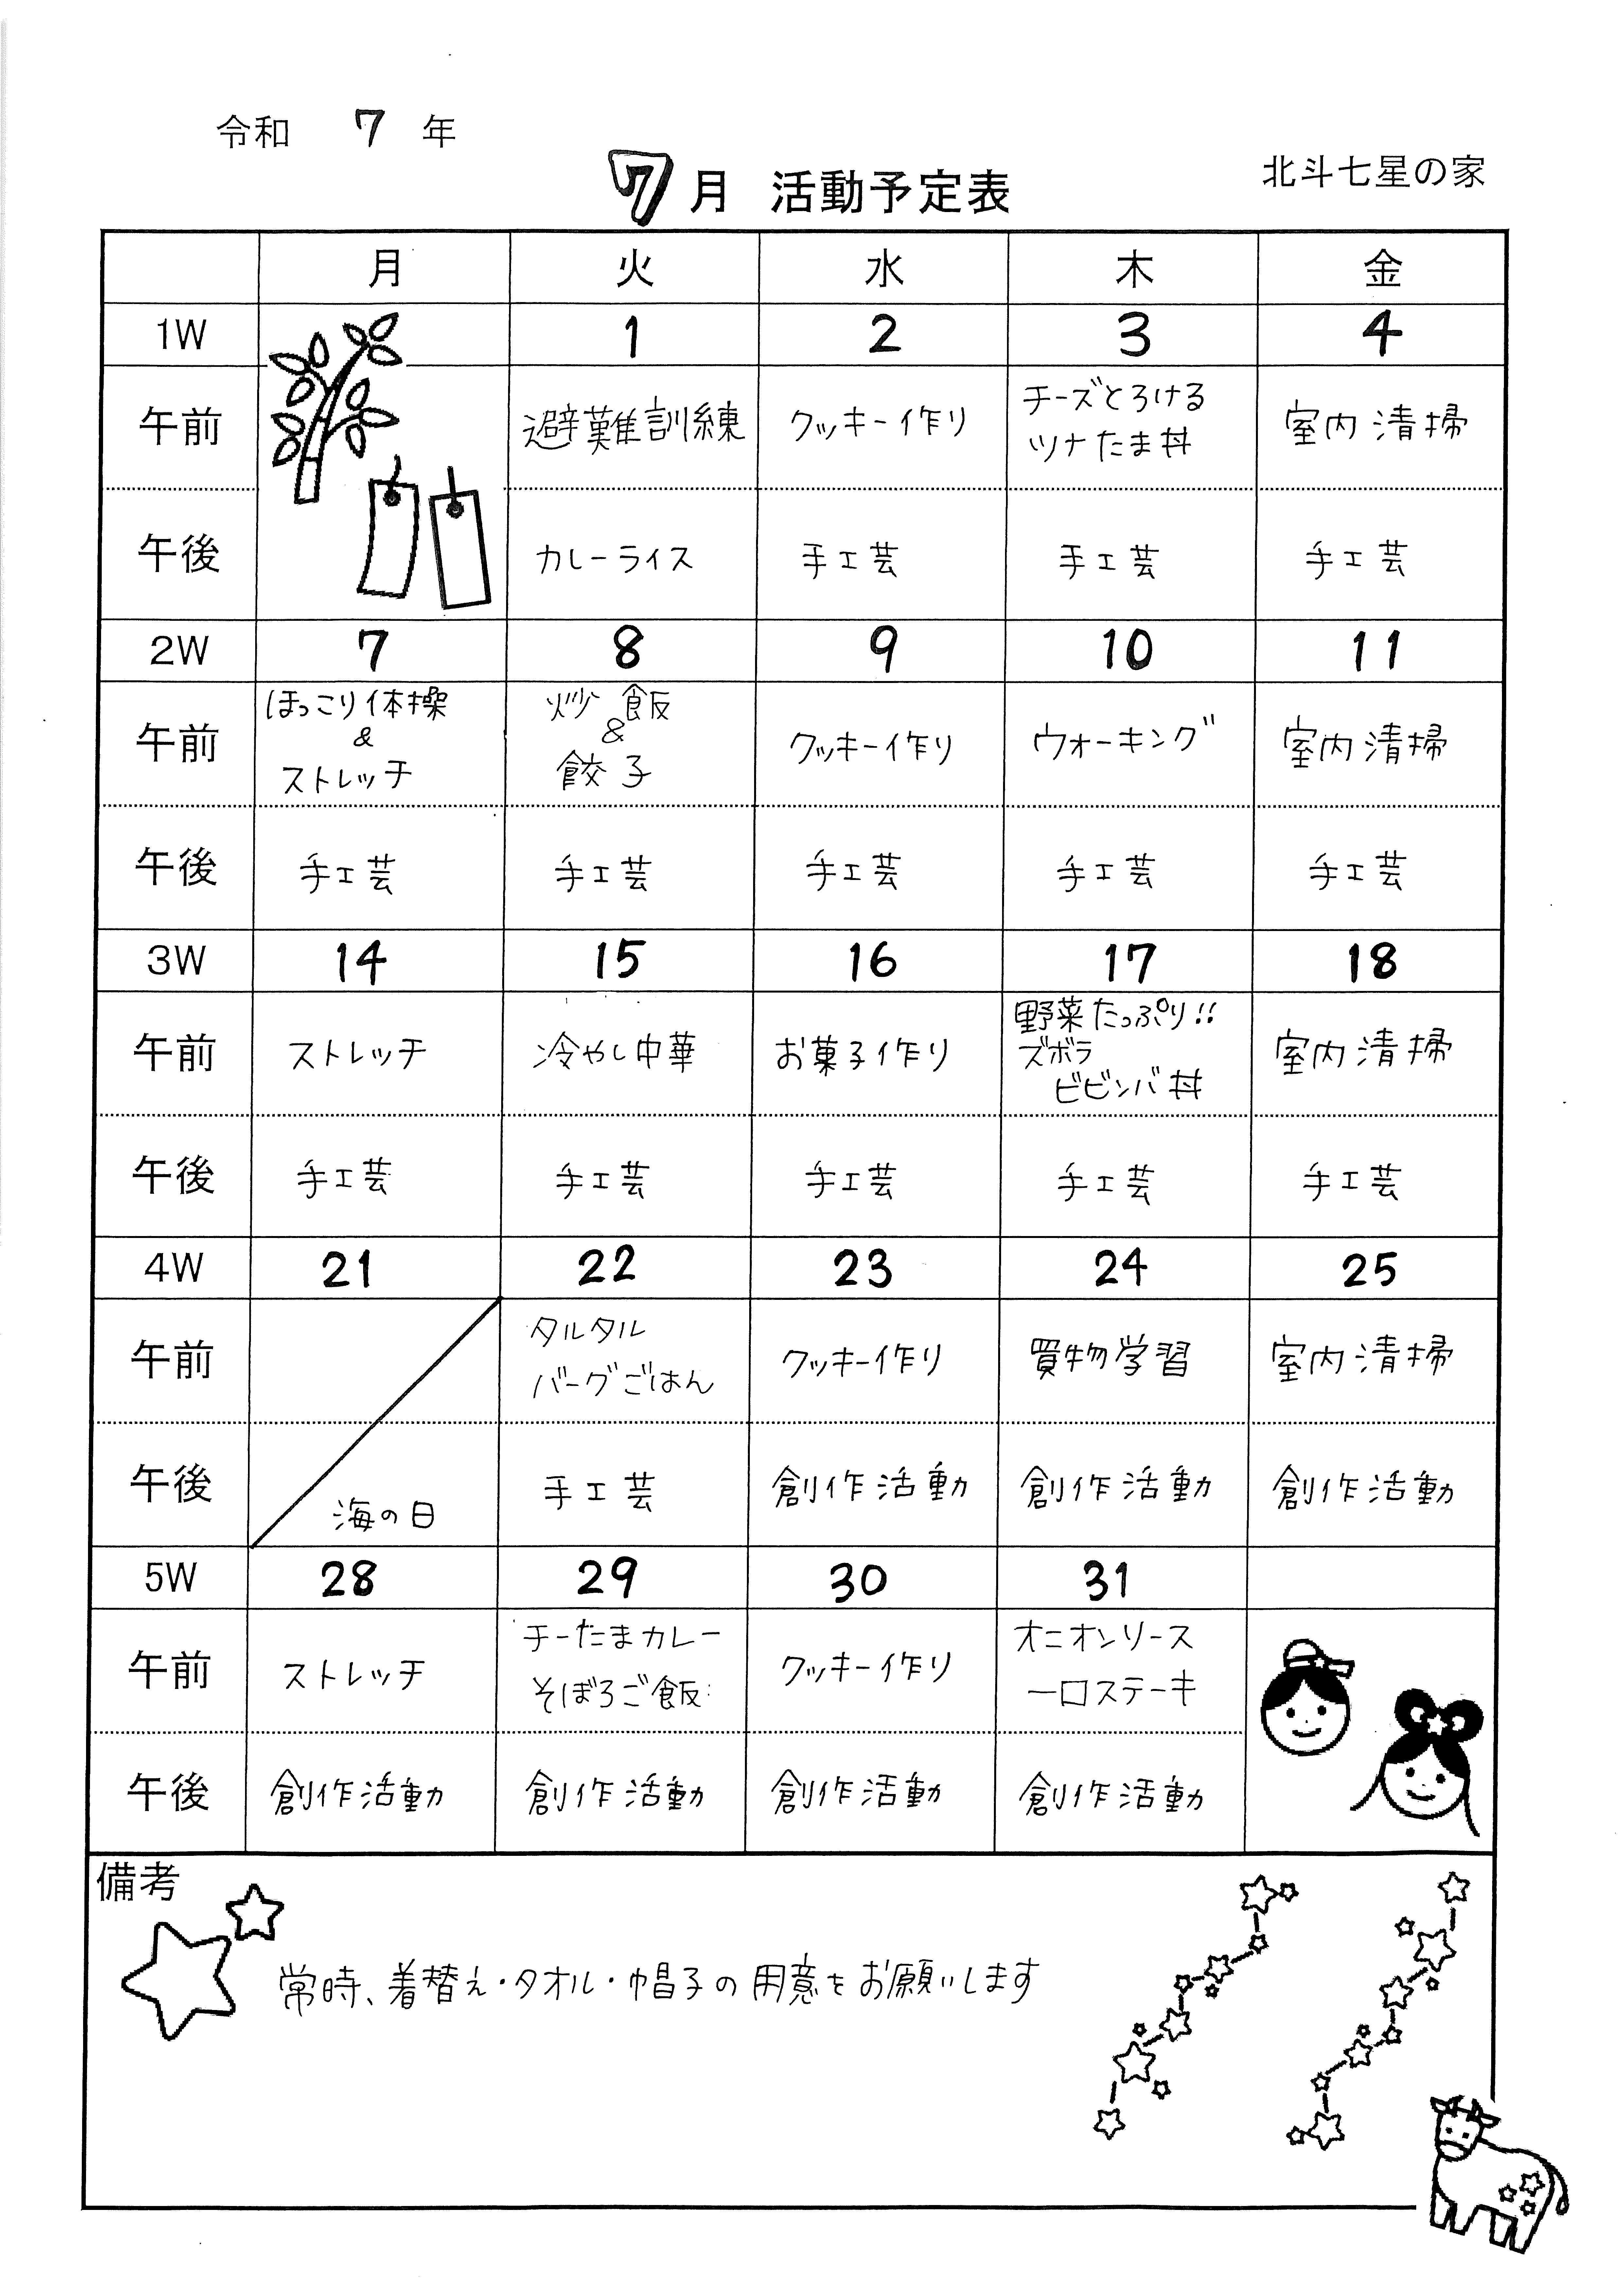 令和 7 年
7月 活動予定表
北斗七星の家
月 火 水 木 金
1W 1 2 3 4
午前 避難訓練 クッキー作り チーズとろける 室内清掃
ツナたま丼
午後 カレーライス 手工芸 手工芸 手工芸
2W 7 8 9 10 11
午前 ほっこり体操 炒飯 クッキー作り ウォーキング 室内清掃
& &
ストレッチ 餃子
午後 手工芸 手工芸 手工芸 手工芸 手工芸
3W 14 15 16 17 18
午前 ストレッチ 冷やし中華 お菓子作り 野菜たっぷり!! 室内清掃
ズボラ
ビビンバ丼
午後 手工芸 手工芸 手工芸 手工芸 手工芸
4W 21 22 23 24 25
午前 タルタル クッキー作り 買物学習 室内清掃
バーグごはん
午後 海の日 手工芸 創作活動 創作活動 創作活動
5W 28 29 30 31
午前 ストレッチ チーたまカレー クッキー作り オニオンソース
そぼろご飯 一口ステーキ
午後 創作活動 創作活動 創作活動 創作活動
備考
常時、着替え・タオル・帽子の用意をお願いします